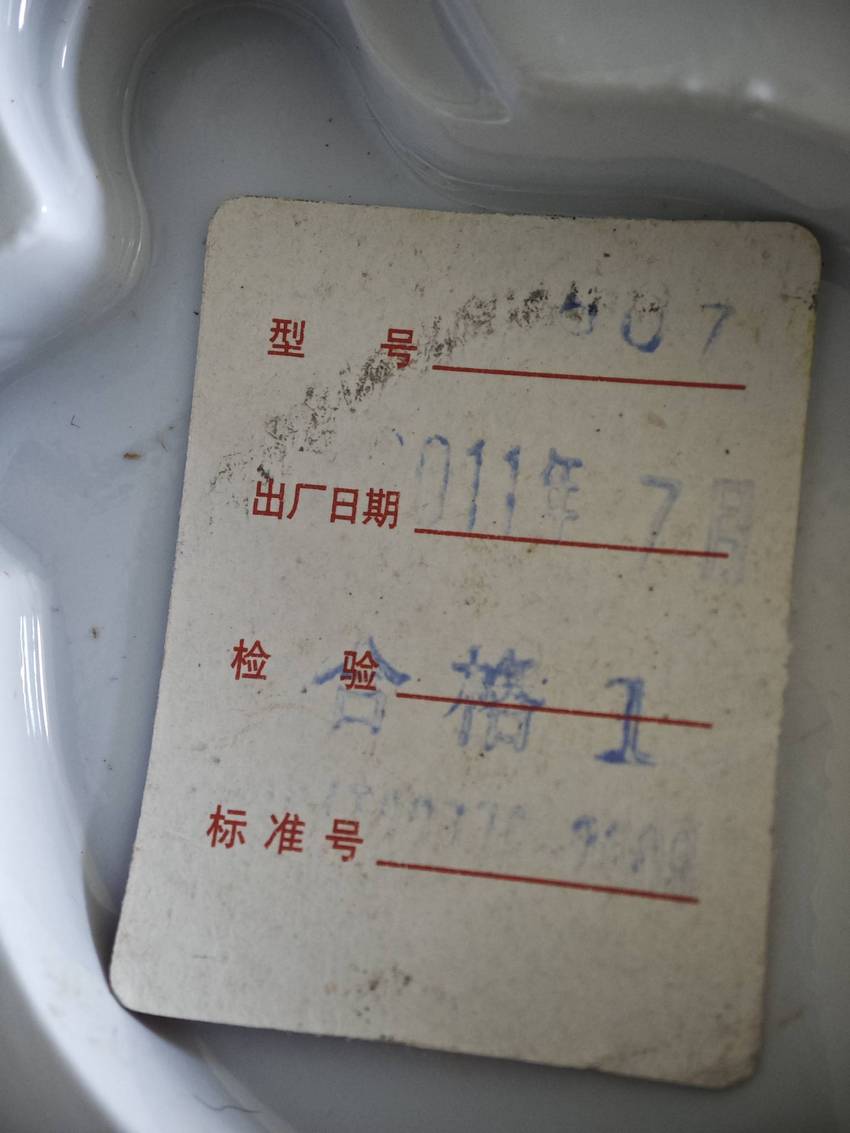 型号 07
出厂日期 2011年7月
检验 合格 1
标准号